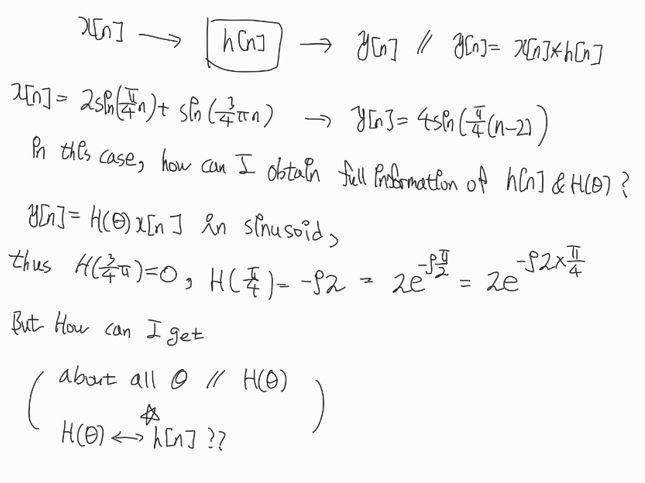 x[n] → h[n] → y[n] // y[n] = x[n]*h[n]
x[n] = 2sin(π/4 n) + sin(3/4 πn) → y[n] = 4sin(π/4(n-2))
in this case, how can I obtain full information of h[n] & H(θ)?
y[n] = H(θ)x[n] in sinusoid,
thus H(3/4 π) = 0, H(π/4) = -j2 = 2e^(-jπ/2) = 2e^(-j2×π/4)
But How can I get
(about all θ // H(θ)
H(θ) ↔ h[n] ??)